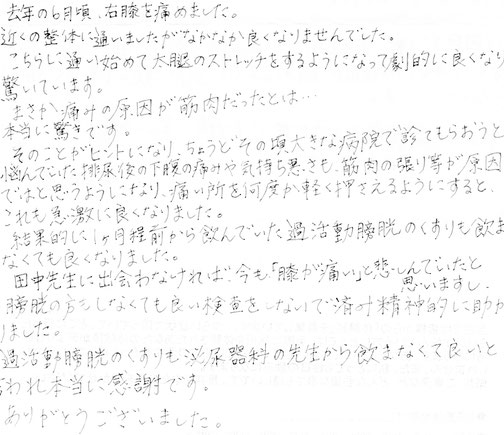 去年の6月頃、右膝を痛めました。
近くの整体に通いましたがなかなか良くなりませんでした。
こちらに通い始めて太腿のストレッチをするようになって劇的に良くなり
驚いています。
まさか痛みの原因が筋肉だったとは…
本当に驚きです。
そのことがヒントになり、ちょうどその頃大きな病院で診てもらおうと
悩んでいた排尿後の下腹の痛みや気持ち悪さも、筋肉の張り等が原因
ではと思うようになり、痛い所を何度か軽く押さえるようにすると、
これも急激に良くなりました。
結果的に1ヶ月程前から飲んでいた過活動膀胱のくすりも飲ま
なくても良くなりました。
田中先生に出会わなければ、今も「膝が痛い」と悲しんでいたと
思いますし、
膀胱の方もしなくても良い検査をしないで済み精神的に助か
りました。
過活動膀胱のくすりも泌尿器科の先生から飲まなくて良いと
言われ本当に感謝です。
ありがとうございました。